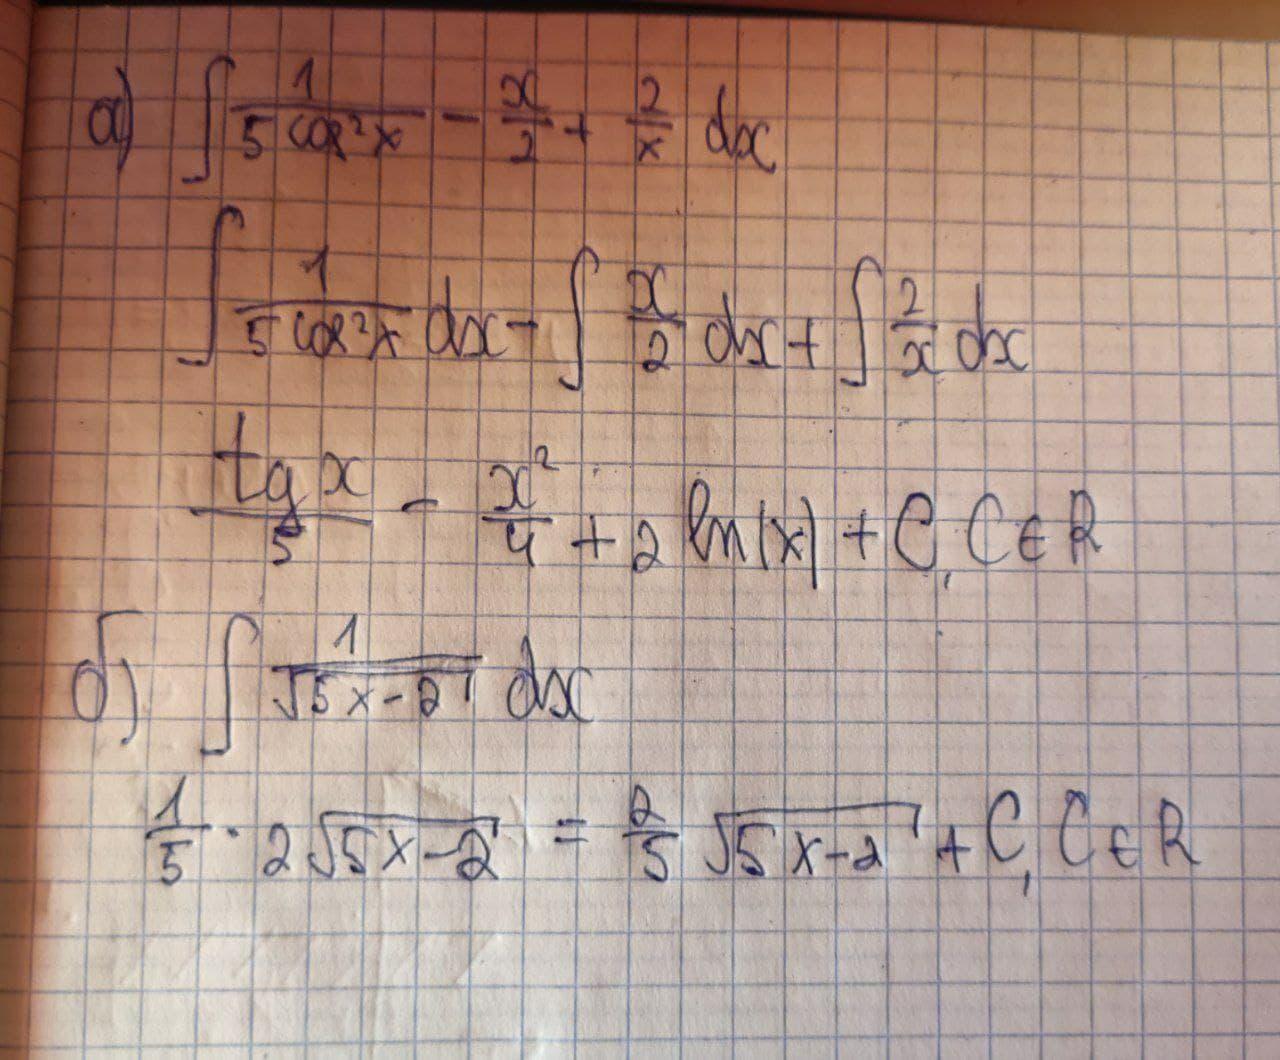 а) ∫ 1/(5 cos²x) − x/2 + 2/x dx
∫ 1/(5 cos²x) dx − ∫ x/2 dx + ∫ 2/x dx
tg x/5 − x²/4 + 2 ln|x| + C, C ∈ R
б) ∫ 1/√(5x−2) dx
1/5 · 2√(5x−2) = 2/5 √(5x−2) + C, C ∈ R